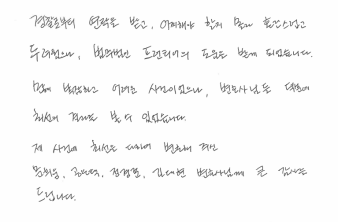 경찰로부터 연락을 받고, 어찌해야 할지 몰라 혼란스럽고
두려웠으나, 법무법인 프런티어의 도움을 받게 되었습니다.
많이 복잡하고 어려운 사건이었으나, 변호사님들 덕분에
최선의 결과를 볼 수 있었습니다.
제 사건에 최선을 다하여 변호해 주신
김대현 변호사님께 큰 감사를
드립니다.